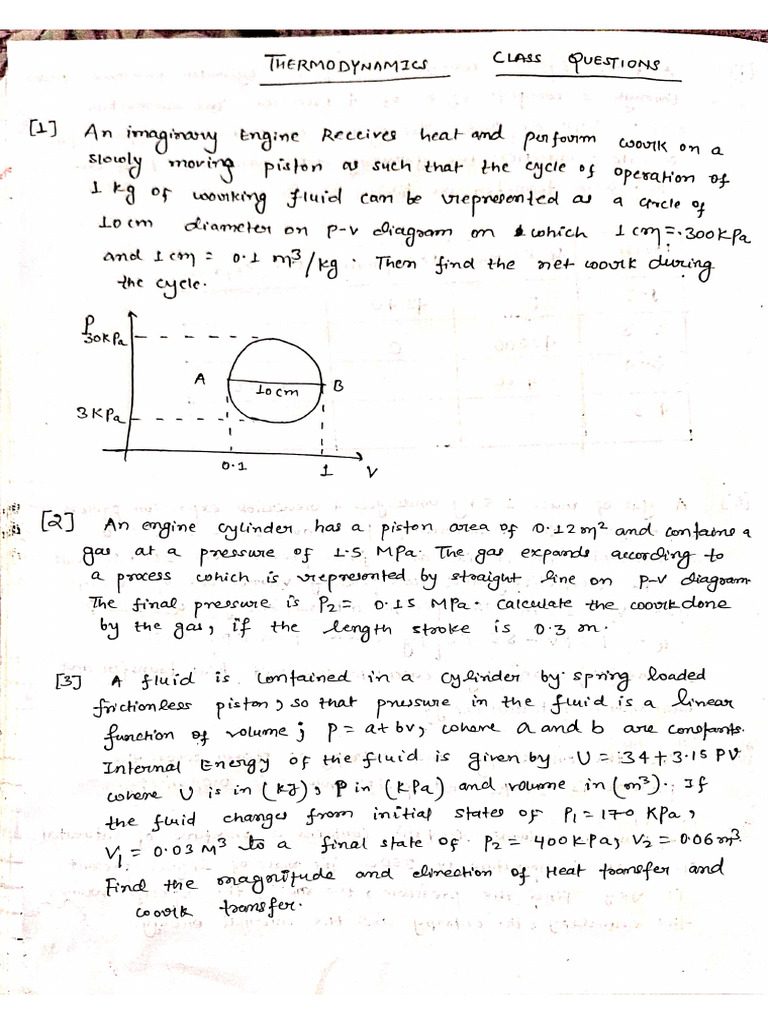 THERMODYNAMICS CLASS QUESTIONS
[1] An imaginary Engine Receives heat and perform work on a
slowly moving piston as such that the cycle of operation of
1 kg of working fluid can be represented as a circle of
10 cm diameter on p-v diagram on which 1 cm = 300 KPa
and 1 cm = 0.1 m³/kg. Then find the net work during
the cycle.
P
30KPa
A 10cm B
3 KPa
0.1 1 V
[2] An engine cylinder has a piston area of 0.12m² and contains a
gas at a pressure of 1.5 MPa. The gas expands according to
a process which is represented by straight line on p-v diagram
The final pressure is P₂ = 0.15 MPa. Calculate the work done
by the gas, if the length stroke is 0.3 m.
[3] A fluid is contained in a cylinder by spring loaded
frictionless piston, so that pressure in the fluid is a linear
function of volume ; P = a+bv, where a and b are constants.
Internal Energy of the fluid is given by U = 34+3.15 PV
where U is in (kJ), P in (KPa) and volume in (m³). If
the fluid changes from initial states of P₁ = 170 KPa,
V₁ = 0.03 M³ to a final state of P₂ = 400 KPa, V₂ = 0.06m³.
Find the magnitude and direction of Heat transfer and
work transfer.